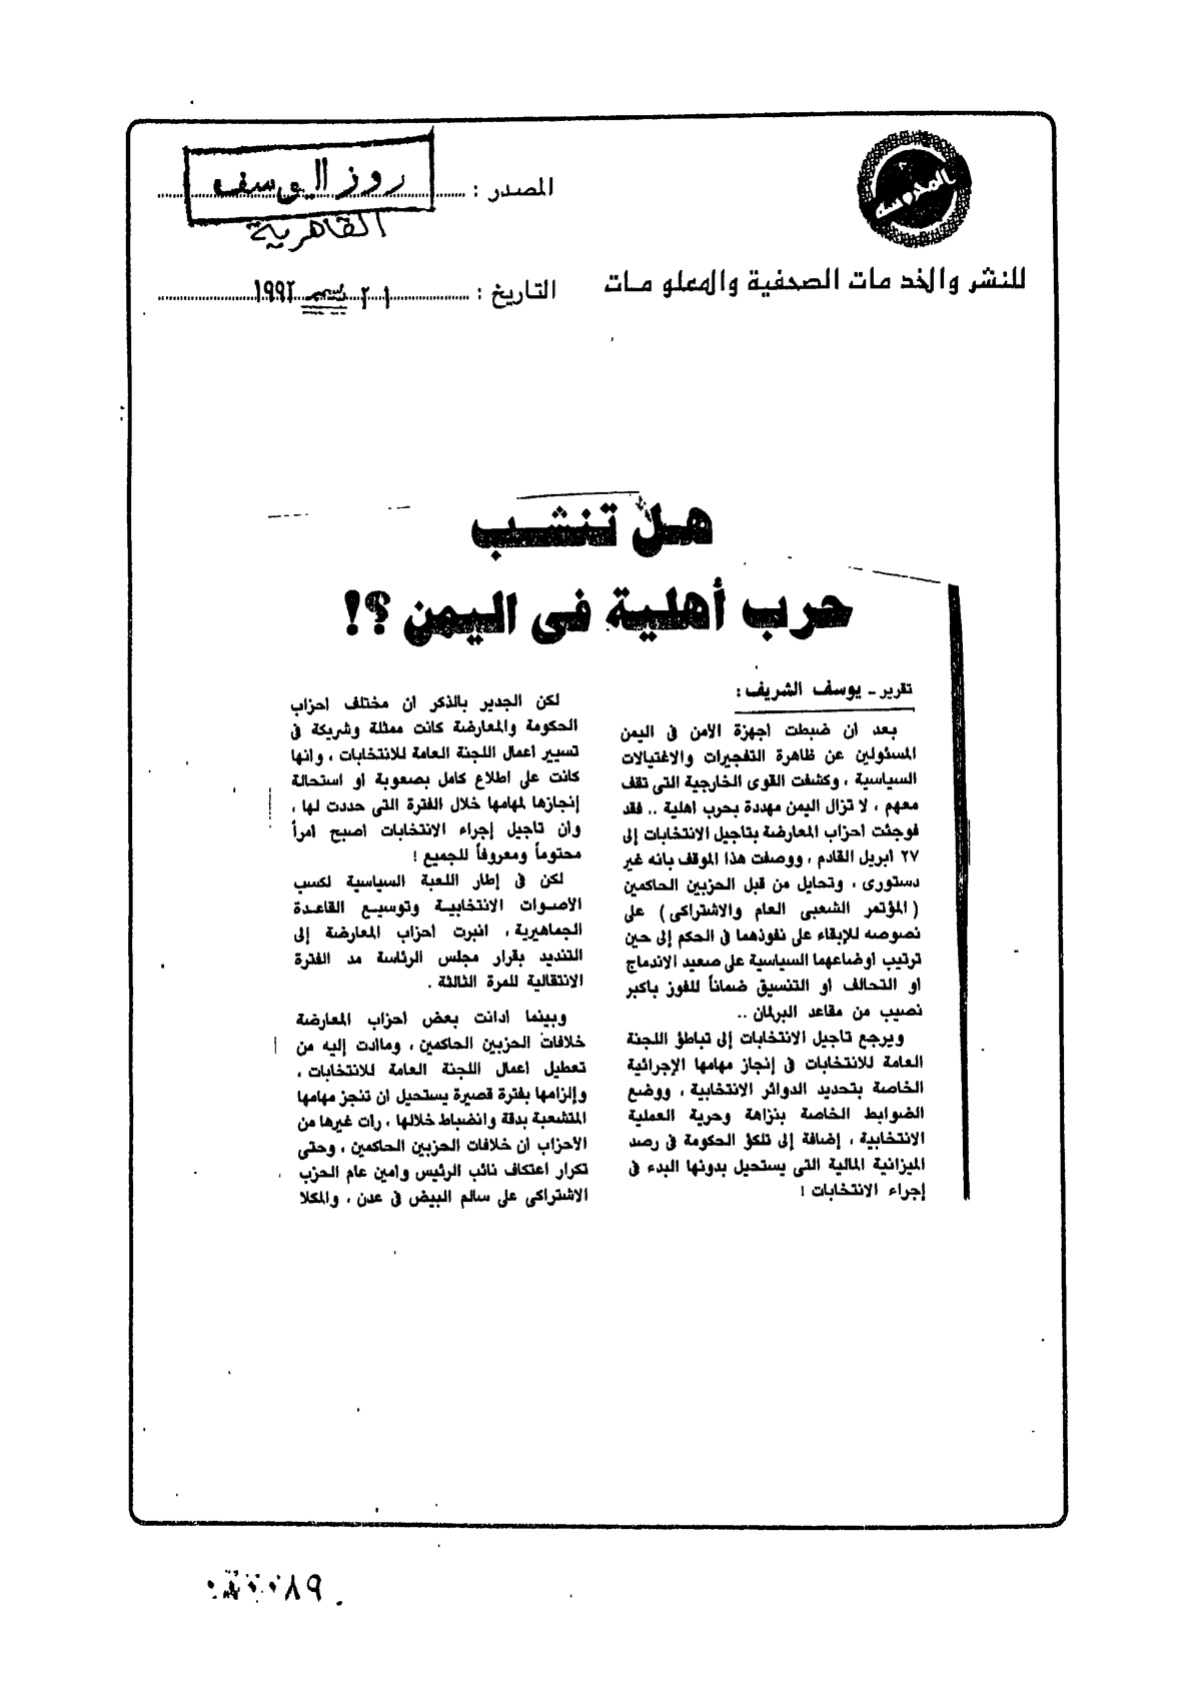 المصدر : روز اليوسف
القاهرية
المحروسة
للنشر والخدمات الصحفية والمعلومات
التاريخ : ٢١ ديسمبر ١٩٩٢
هل تنشب
حرب أهلية فى اليمن ؟!
تقرير ـ يوسف الشريف :
بعد ان ضبطت اجهزة الامن فى اليمن
المسئولين عن ظاهرة التفجيرات والاغتيالات
السياسية ، وكشفت القوى الخارجية التى تقف
معهم ، لا تزال اليمن مهددة بحرب اهلية .. فقد
فوجئت احزاب المعارضة بتاجيل الانتخابات إلى
٢٧ ابريل القادم ، ووصفت هذا الموقف بانه غير
دستورى ، وتحايل من قبل الحزبين الحاكمين
( المؤتمر الشعبى العام والاشتراكى ) على
نصوصه للإبقاء على نفوذهما فى الحكم إلى حين
ترتيب اوضاعهما السياسية على صعيد الاندماج
او التحالف او التنسيق ضماناً للفوز باكبر
نصيب من مقاعد البرلمان ..
ويرجع تاجيل الانتخابات إلى تباطؤ اللجنة
العامة للانتخابات فى إنجاز مهامها الإجرائية
الخاصة بتحديد الدوائر الانتخابية ، ووضع
الضوابط الخاصة بنزاهة وحرية العملية
الانتخابية ، إضافة إلى تلكؤ الحكومة فى رصد
الميزانية المالية التى يستحيل بدونها البدء فى
إجراء الانتخابات !
لكن الجدير بالذكر ان مختلف احزاب
الحكومة والمعارضة كانت ممثلة وشريكة فى
تسيير اعمال اللجنة العامة للانتخابات ، وانها
كانت على اطلاع كامل بصعوبة او استحالة
إنجازها لمهامها خلال الفترة التى حددت لها ،
وان تاجيل إجراء الانتخابات اصبح امراً
محتوماً ومعروفاً للجميع !
لكن فى إطار اللعبة السياسية لكسب
الاصوات الانتخابية وتوسيع القاعدة
الجماهيرية ، انبرت احزاب المعارضة إلى
التنديد بقرار مجلس الرئاسة مد الفترة
الانتقالية للمرة الثالثة .
وبينما ادانت بعض احزاب المعارضة
خلافات الحزبين الحاكمين ، وماادت إليه من
تعطيل اعمال اللجنة العامة للانتخابات ،
وإلزامها بفترة قصيرة يستحيل ان تنجز مهامها
المتشعبة بدقة وانضباط خلالها ، رات غيرها من
الاحزاب ان خلافات الحزبين الحاكمين ، وحتى
تكرار اعتكاف نائب الرئيس وامين عام الحزب
الاشتراكى على سالم البيض فى عدن ، والمكلا